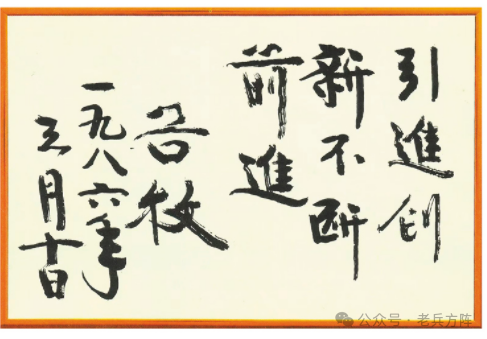 引進創
新不断
前進
谷牧
一九八六年
三月十日
公众号·老兵方阵